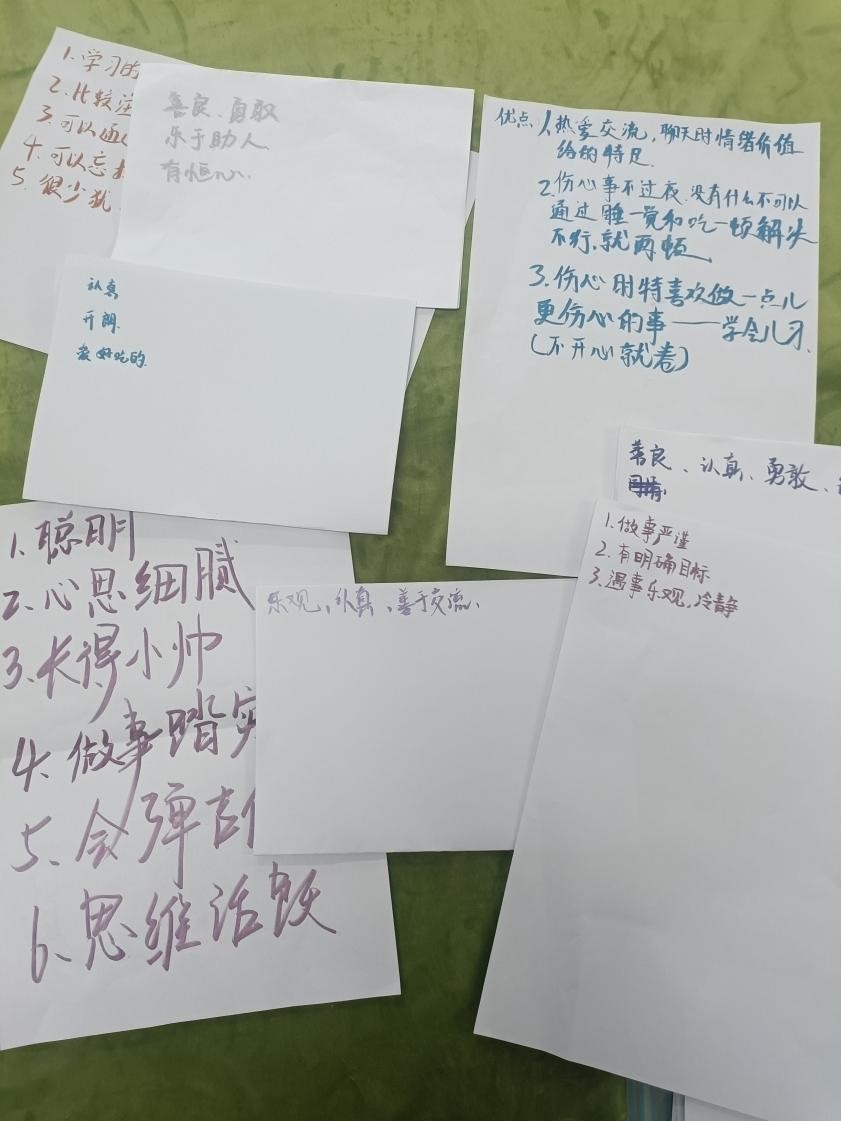 1. 学习的
2. 比较注
3. 可以通
4. 可以忘
5. 很少犹
善良、勇敢
乐于助人
有恒心
认真
开朗
爱好吃的
优点 1. 热爱交流，聊天时情绪价值
给的特足
2. 伤心事不过夜，没有什么不可以
通过睡一觉和吃一顿解决
不行，就两顿
3. 伤心时特喜欢做一点儿
更伤心的事——学会儿习
（不开心就卷）
善良、认真、勇敢、
1. 做事严谨
2. 有明确目标
3. 遇事乐观，冷静
乐观、认真、善于交流、
1. 聪明
2. 心思细腻
3. 长得小帅
4. 做事踏实
5. 会弹吉
6. 思维活跃